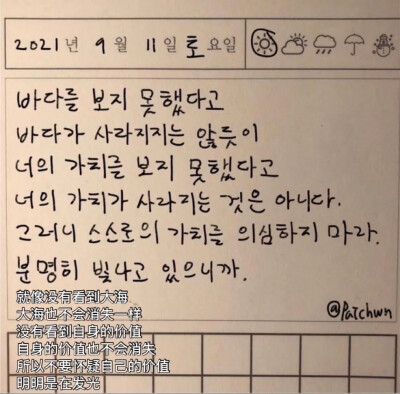 2021년 9월 11일 토요일
바다를 보지 못했다고
바다가 사라지지는 않듯이
너의 가치를 보지 못했다고
너의 가치가 사라지는 것은 아니다.
그러니 스스로의 가치를 의심하지 마라.
분명히 빛나고 있으니까.
@patchwn
就像没有看到大海
大海也不会消失一样
没有看到自身的价值
自身的价值也不会消失
所以不要怀疑自己的价值
明明是在发光